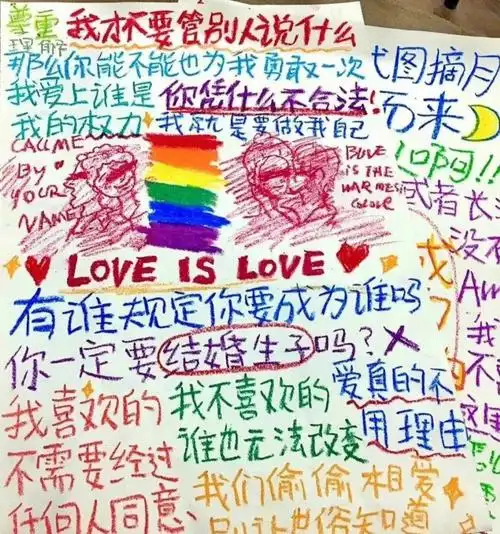 尊重
理解
我才不要管别人说什么
那么你能不能也为我勇敢一次
我爱上谁是
我的权力
你凭什么不合法!
我就是要做我自己
弋图摘月
而来
CALL ME
BY
YOUR
NAME
BLUE
IS THE
WARMEST
COLOR
LOVE IS LOVE
有谁规定你要成为谁吗
你一定要结婚生子吗?×
我喜欢的
不需要经过
任何人同意
我不喜欢的
谁也无法改变
爱真的不
用理由
我们偷偷相爱
别让世俗知道
或者长
没有